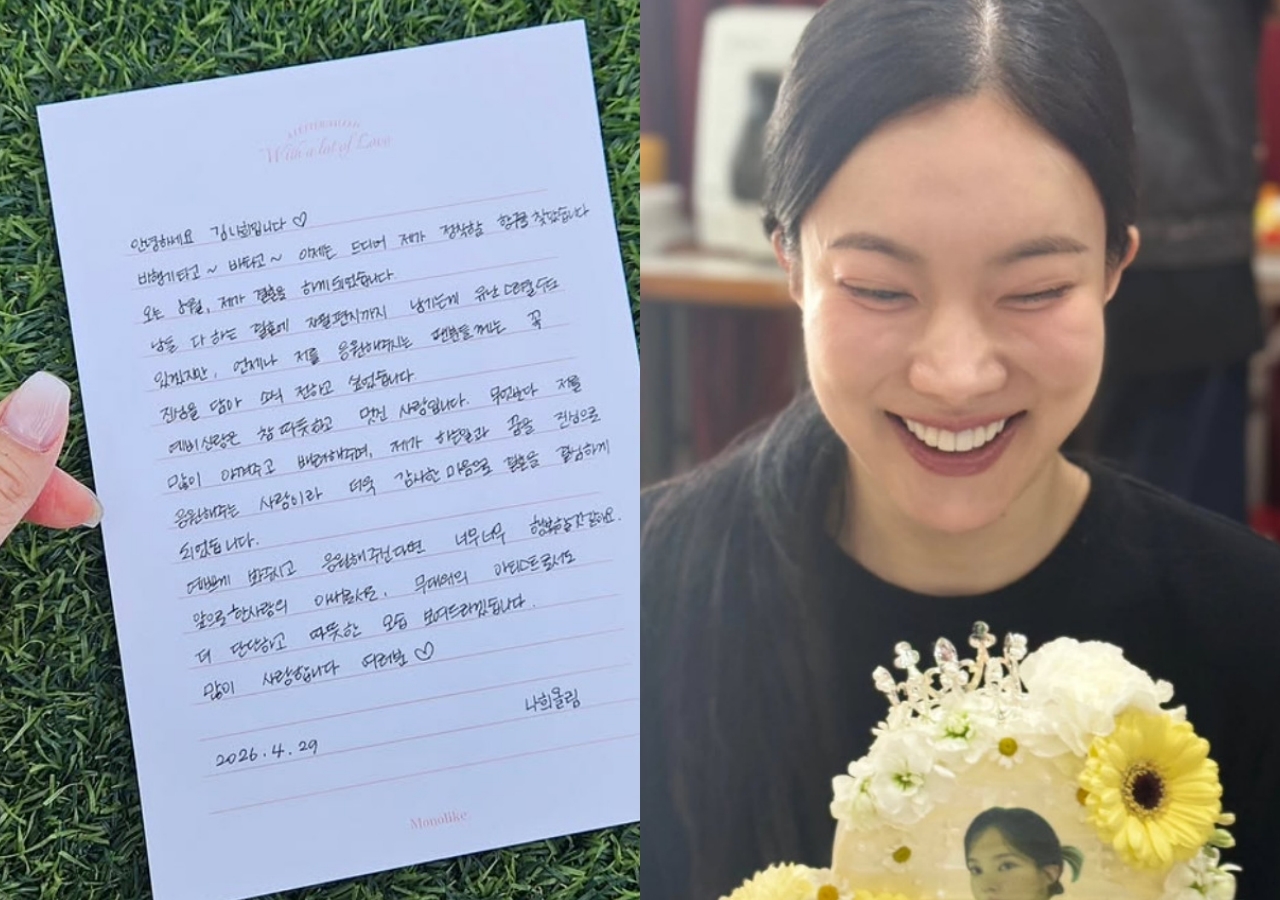 With a lot of Love
안녕하세요 김나희입니다 ♡
비행기타고 ~ 배타고 ~ 이제는 드디어 제가 정착할 항구를 찾았습니다
오는 9월, 제가 결혼을 하게 되었습니다
남들 다 하는 결혼에 자필편지까지 남기는게 유난스러울 수도
있겠지만, 언제나 저를 응원해주시는 팬분들께는 꼭
진심을 담아 소식 전하고 싶었습니다
예비신랑은 참 따뜻하고 멋진 사람입니다. 무엇보다 저를
많이 아껴주고 배려해주며, 제가 하는일과 꿈을 진심으로
응원해주는 사람이라 더욱 감사한 마음으로 결혼을 결심하게
되었습니다.
예쁘게 봐주시고 응원해주신다면 너무너무 행복할것같아요.
앞으로 한사람의 아내로서도, 무대위의 아티스트로서도
더 단단하고 따뜻한 모습 보여드리겠습니다.
많이 사랑합니다 여러분 ♡
나희올림
2026. 4. 29
Monolike